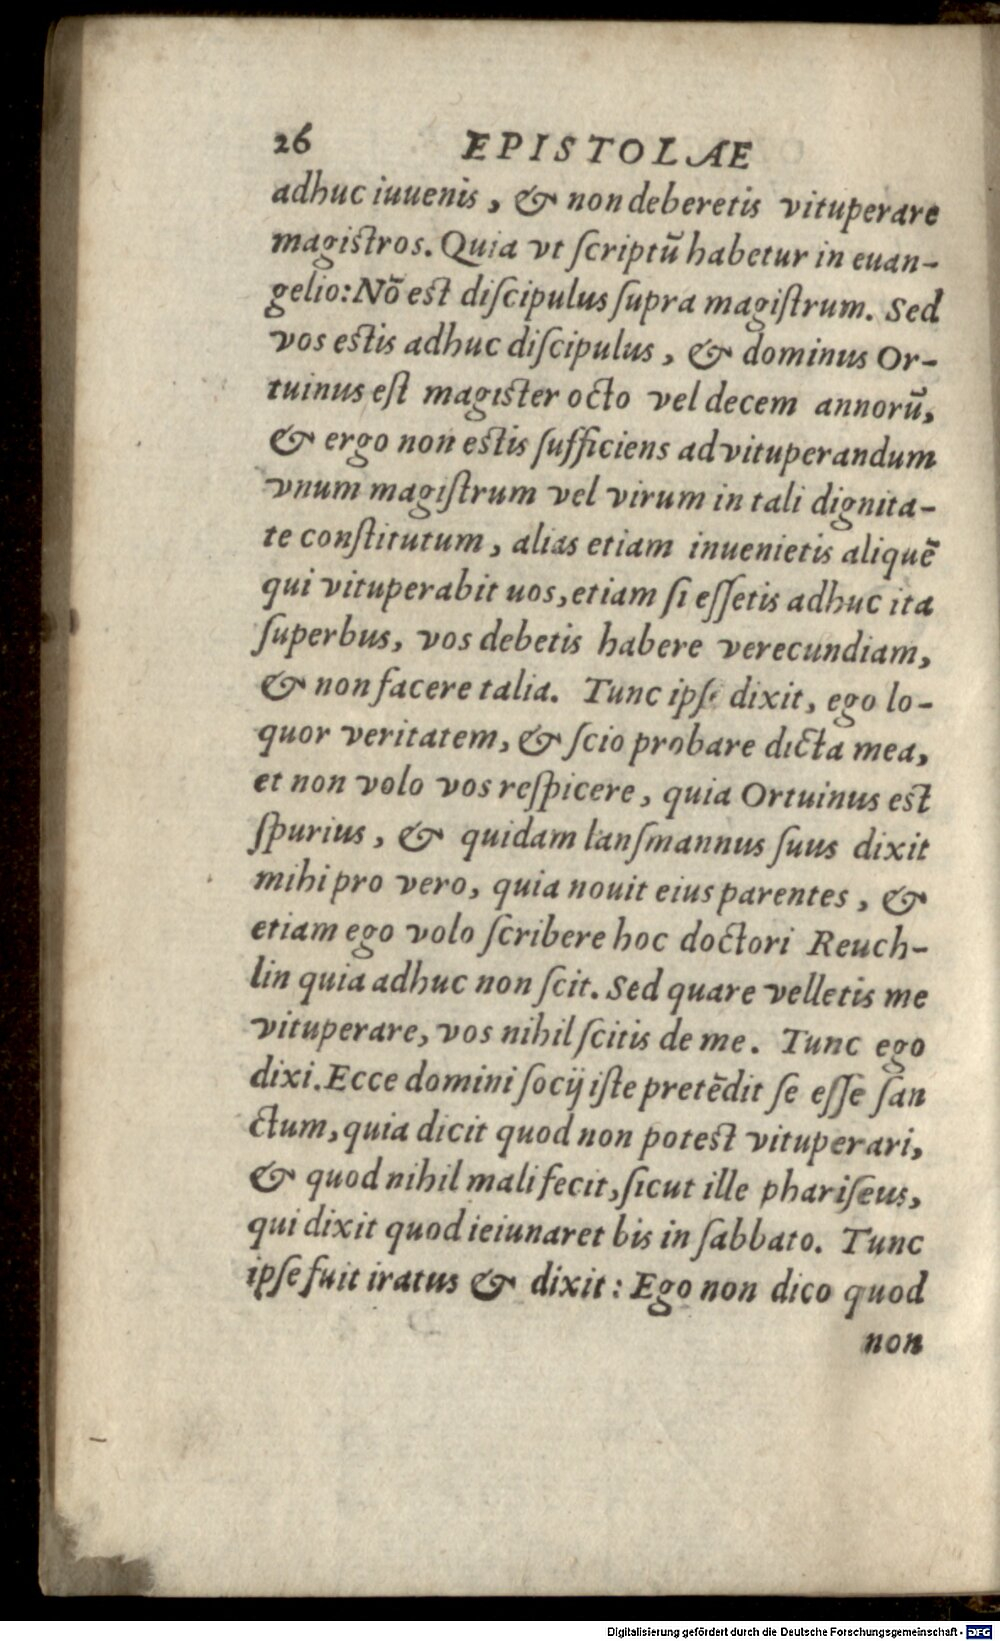 26 EPISTOLAE
adhuc iuuenis, & non deberetis vituperare
magistros. Quia vt ſcriptū habetur in euan-
gelio: Nō est diſcipulus ſupra magiſtrum. Sed
vos estis adhuc diſcipulus, & dominus Or-
tuinus eſt magister octo vel decem annorū,
& ergo non estis ſufficiens ad vituperandum
vnum magiſtrum vel virum in tali dignita-
te conſtitutum, alias etiam inuenietis aliquē
qui vituperabit uos, etiam ſi eſſetis adhuc ita
ſuperbus, vos debetis habere verecundiam,
& non facere talia. Tunc ipſe dixit, ego lo-
quor veritatem, & ſcio probare dicta mea,
et non volo vos reſpicere, quia Ortuinus est
ſpurius, & quidam lanſmannus ſuus dixit
mihi pro vero, quia nouit eius parentes, &
etiam ego volo ſcribere hoc doctori Reuch-
lin quia adhuc non ſcit. Sed quare velletis me
vituperare, vos nihil ſcitis de me. Tunc ego
dixi. Ecce domini ſocij iſte pretēdit ſe eſſe ſan
ctum, quia dicit quod non potest vituperari,
& quod nihil mali fecit, ſicut ille phariſeus,
qui dixit quod ieiunaret bis in ſabbato. Tunc
ipſe fuit iratus & dixit: Ego non dico quod
non
Digitalisierung gefördert durch die Deutsche Forschungsgemeinschaft - DFG